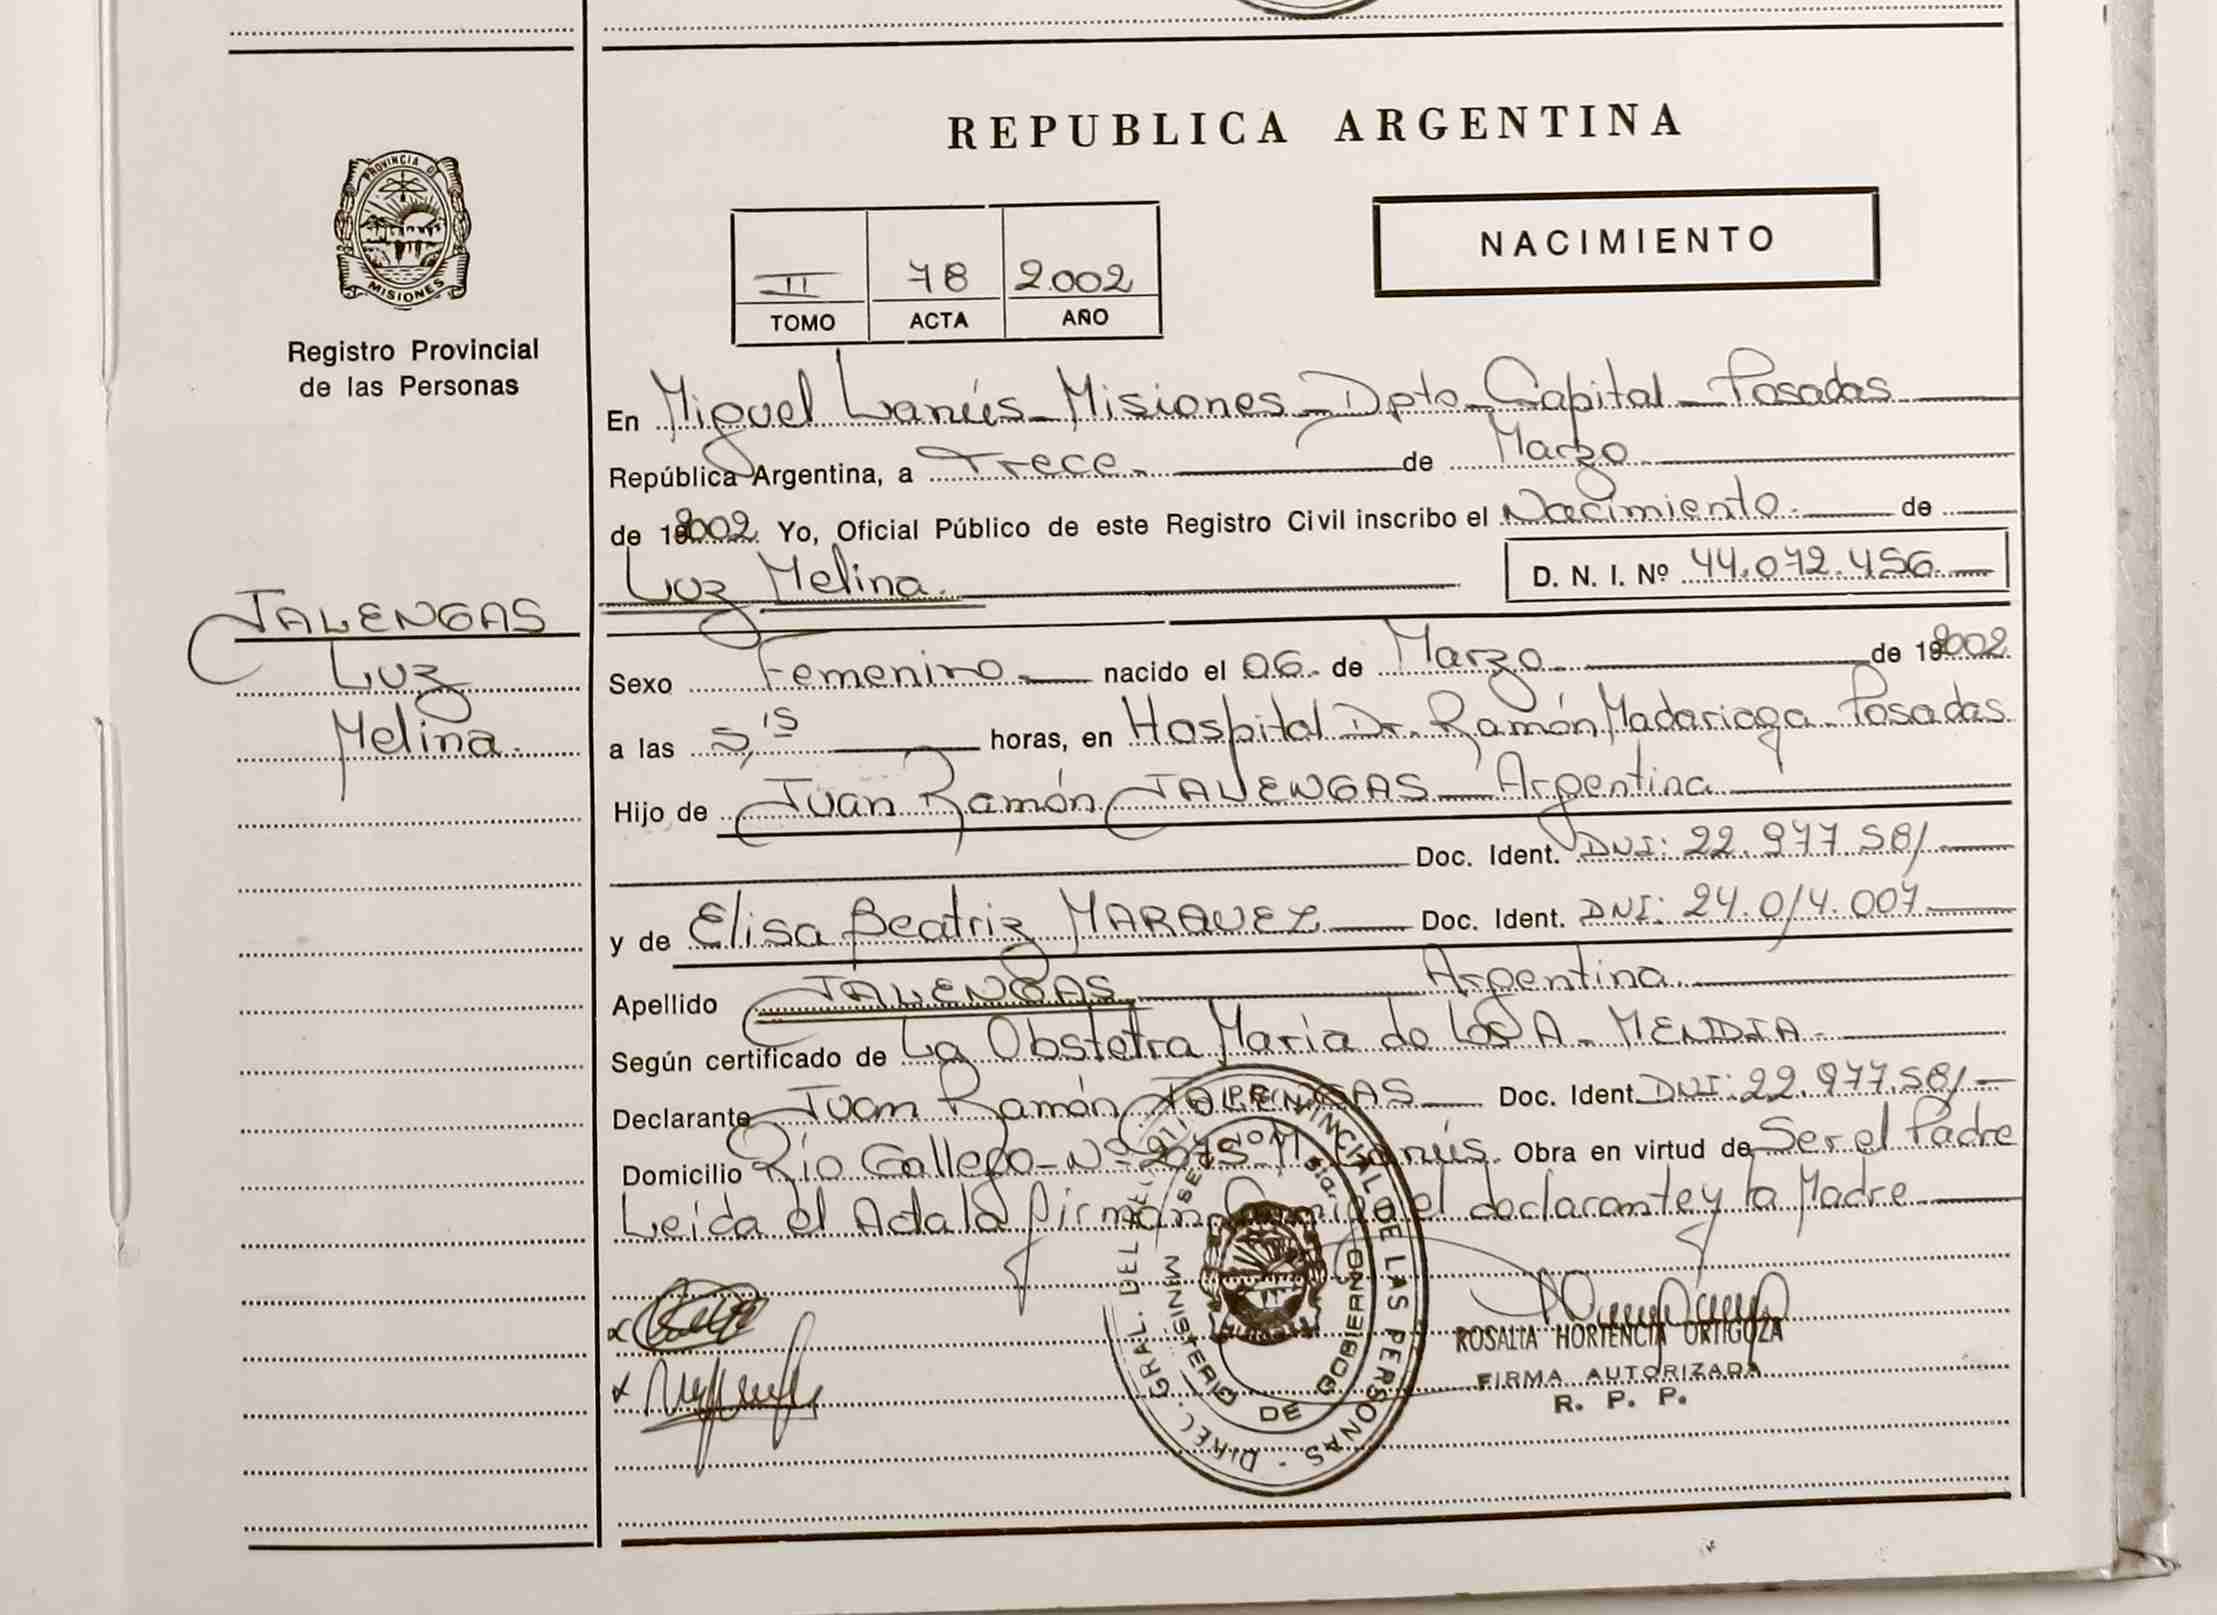 PROVINCIA DE
MISIONES
Registro Provincial
de las Personas
JALENGAS
Luz
Melina.
REPUBLICA ARGENTINA
II 78 2.002
TOMO ACTA AÑO
NACIMIENTO
En Miguel Lanús - Misiones - Dpto - Capital - Posadas
República Argentina, a Trece. de Marzo
de 2002. Yo, Oficial Público de este Registro Civil inscribo el Nacimiento. de
Luz Melina. D. N. I. Nº 44.072.456
Sexo Femenino nacido el 06. de Marzo de 2002
a las 5,15 horas, en Hospital Dr. Ramón Madariaga - Posadas
Hijo de Juan Ramón JALENGAS - Argentina
Doc. Ident. DNI: 22.977.581
y de Elisa Beatriz MARQUEZ Doc. Ident. DNI: 24.014.007
Apellido JALENGAS Argentina
Según certificado de La Obstetra Maria de los A. MENDIA.
Declarante Juan Ramón JALENGAS Doc. Ident. DNI: 22.977.581
Domicilio Río Gallego - Nº 2075 - M. Lanús. Obra en virtud de Ser el Padre
Leída el Acta la firman Conmigo el declarante y la Madre
DIREC. GRAL. DEL REG. PROVINCIAL DE LAS PERSONAS -
MINISTERIO DE GOBIERNO
ROSALIA HORTENCIA ORTIGOZA
FIRMA AUTORIZADA
R. P. P.